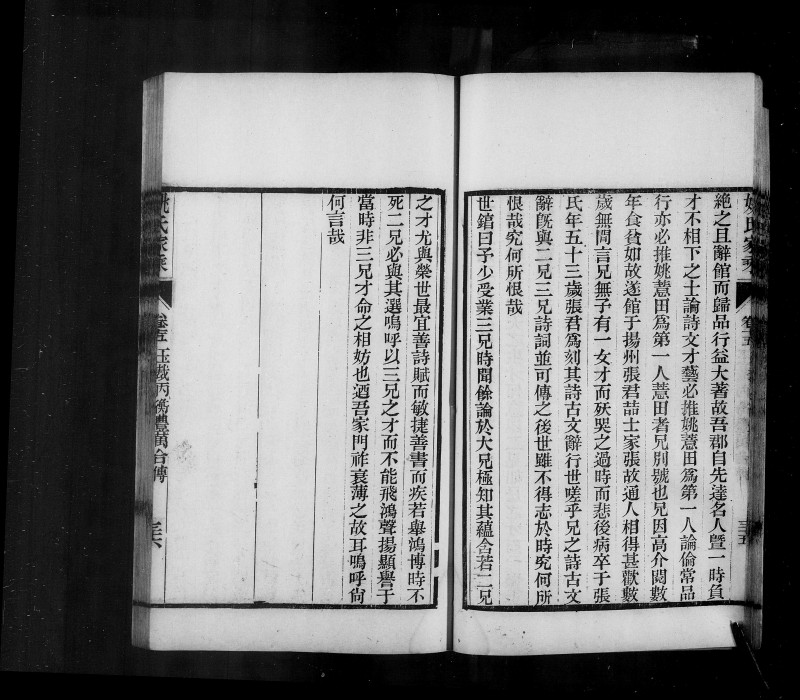 姚氏家乘
卷五
三五
絕之且辭館而歸品行益大著故吾郡自先達名人曁一時負
才不相下之士論詩文才藝必推姚薏田爲第一人論倫常品
行亦必推姚薏田爲第一人薏田者兄別號也兄因高介閱數
年食貧如故遂館于揚州張君喆士家張故通人相得甚歡數
歲無間言兄無子有一女才而殀哭之過時而悲後病卒于張
氏年五十三歲張君爲刻其詩古文辭行世嗟乎兄之詩古文
辭旣與二兄三兄詩詞並可傳之後世雖不得志於時究何所
恨哉究何所恨哉
世錧曰予少受業三兄時聞餘論於大兄極知其蘊含若二兄
之才尤與榮世最宜善詩賦而敏捷善書而疾若舉鴻博時不
死二兄必與其選嗚呼以三兄之才而不能飛鴻聲揚顯譽于
當時非三兄才命之相妨也迺吾家門祚衰薄之故耳嗚呼尙
何言哉
姚氏家乘
卷五 玉裁丙衡豊萬合傳
三六